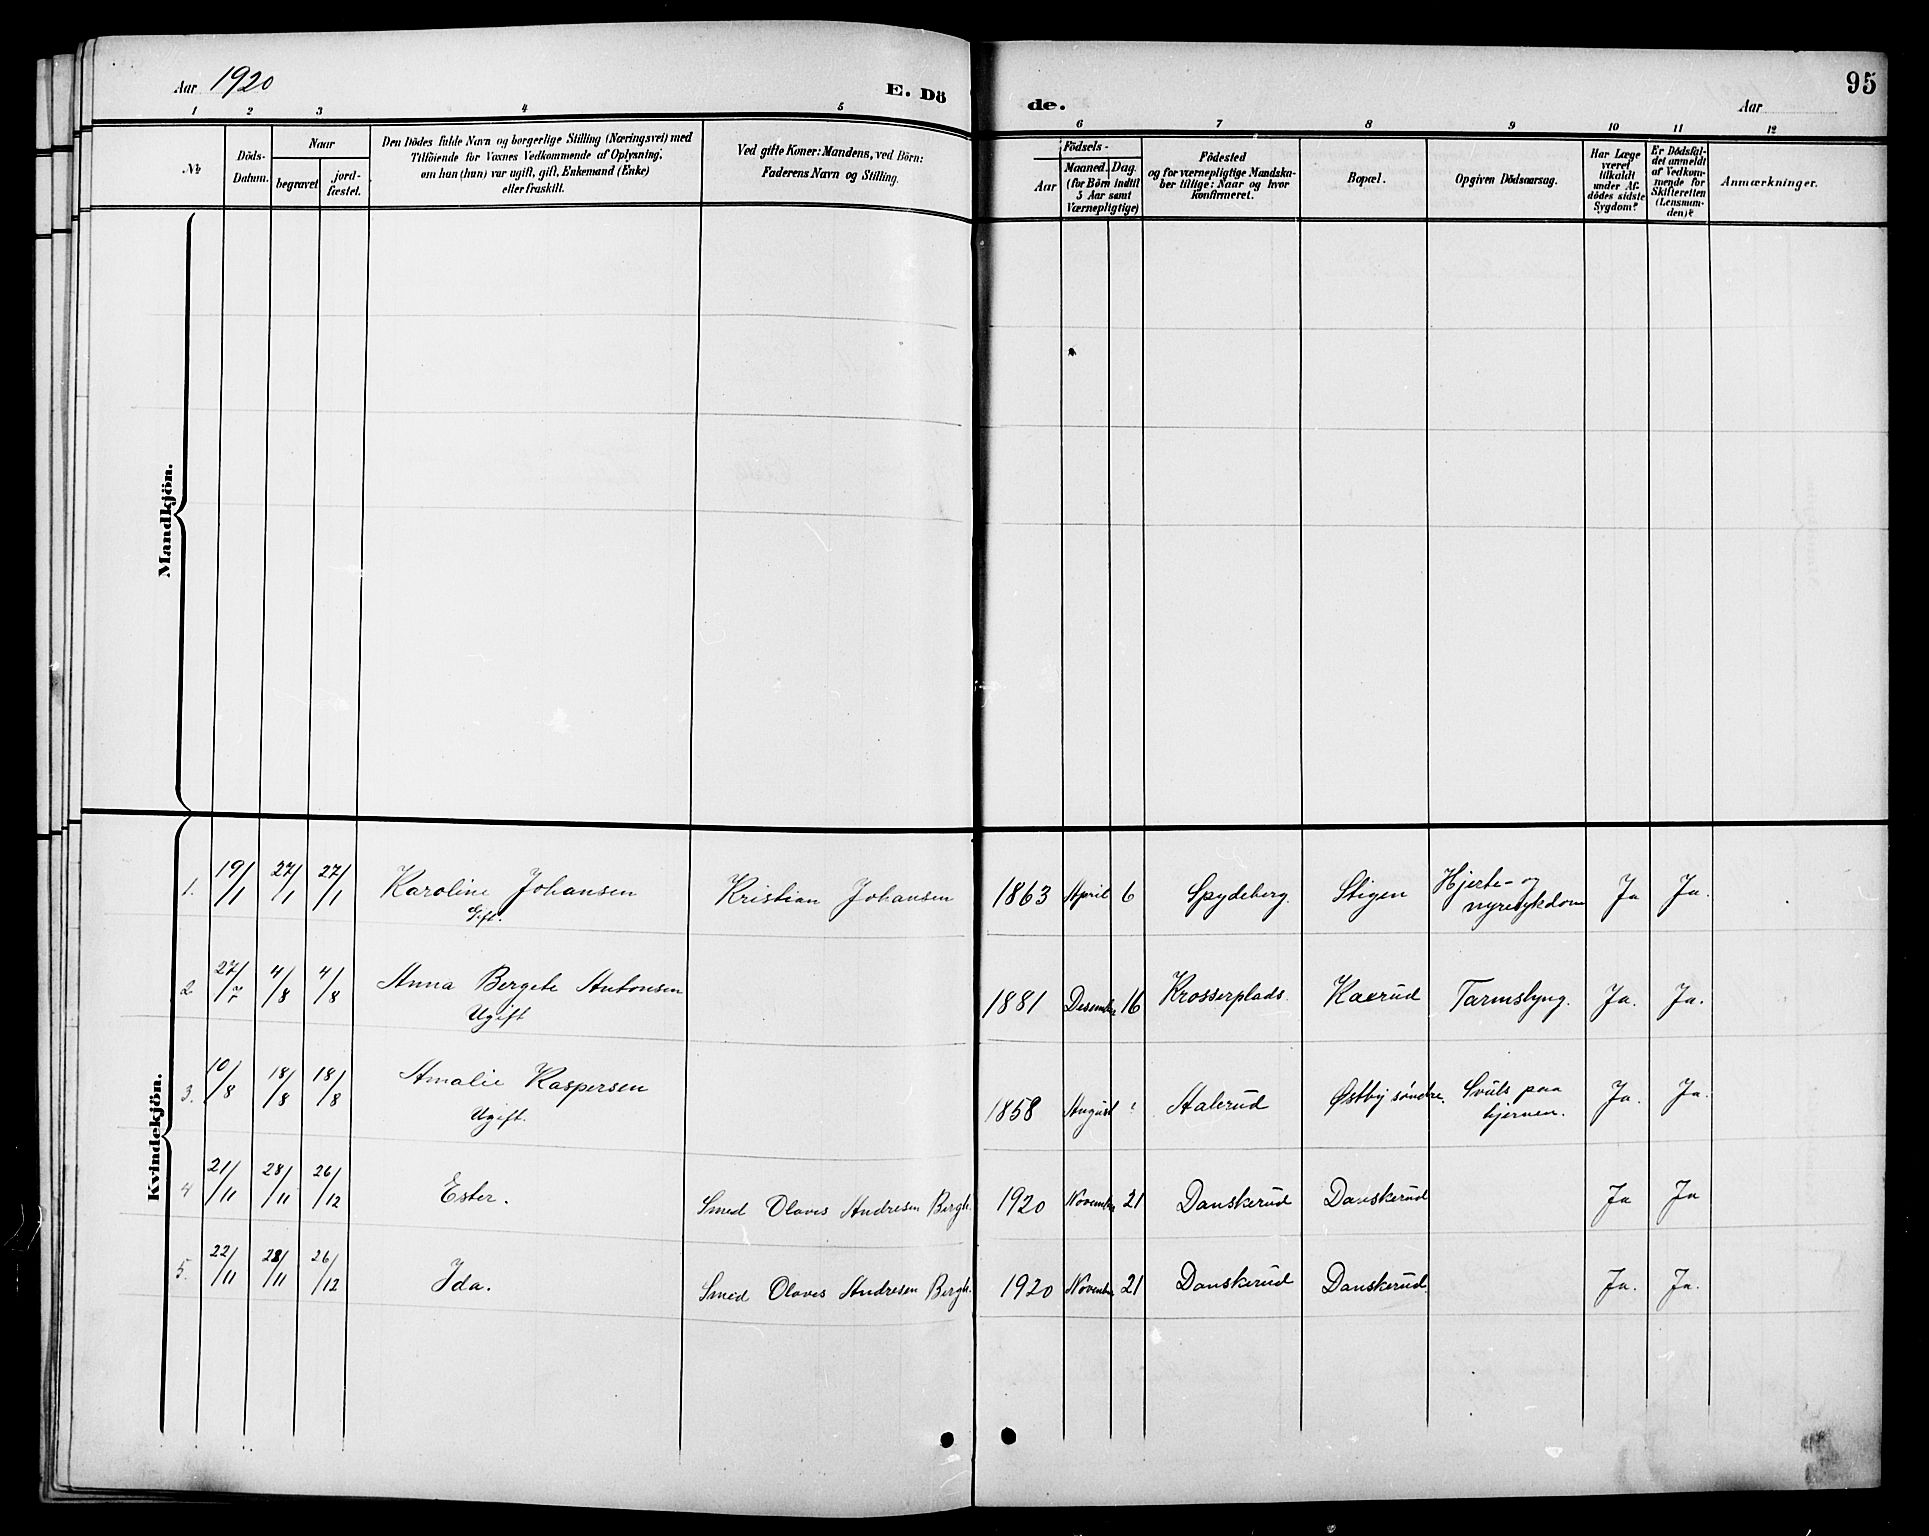 Aar 1920
E. Dö
de.
Aar
95
1 2 3 4 5
6 7 8 9 10 11 12
No
Döds-
Datum.
Naar
begravet
jord-
fæstet.
Den Dödes fulde Navn og borgerlige Stilling (Næringsvei) med
Tilföiende for Voxnes Vedkommende af Oplysning,
om han (hun) var ugift, gift, Enkemand (Enke)
eller fraskilt.
Ved gifte Koner: Mandens, ved Börn:
Faderens Navn og Stilling.
Födsels-
Aar
Maaned. Dag.
(for Börn indtil
5 Aar samt
Værnepligtige)
Födested
og for værnepligtige Mandska-
ber tillige: Naar og hvor
konfirmeret.
Bopæl.
Opgiven Dödsaarsag.
Har Læge
været
tilkaldt
under Af-
dödes sidste
Sygdom?
Er Dödsfal-
det anmeldt
af Vedkom-
mende for
Skifteretten
(Lensman-
den)?
Anmærkninger.
Mandkjön.
Kvindekjön.
1. 19/1 27/1 27/1 Karoline Johansen Kristian Johansen 1863 April 6 Spydeberg. Stigen Hjerte- og Ja Ja.
Gift. nyresykdom
2 27/7 4/8 4/8 Anna Bergete Antonsen 1881 Desember 16 Krosserplads. Kaerud Tarmslyng. Ja. Ja.
Ugift
3. 10/8 18/8 18/8 Amalie Kaspersen 1858 August ? Stalerud Østby søndre. Svuls paa Ja. Ja.
Ugift. hjernen.
4 21/11 28/11 26/12 Ester. Smed Olaves Andresen Bergh. 1920 November 21 Danskerud Danskerud Ja Ja
5. 22/11 28/11 26/12 Ida. Smed Olaves Andresen Bergh. 1920 November 21 Danskerud Danskerud. Ja. Ja.